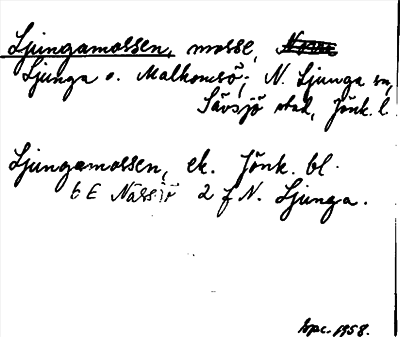 Ljungamossen, mosse,
Ljunga o. Malkomsö; N. Ljunga sn,
Sävsjö stad, Jönk. l.
Ljungamossen, ek. Jönk. bl.
6 E Nässjö 2 f N. Ljunga.
1958.